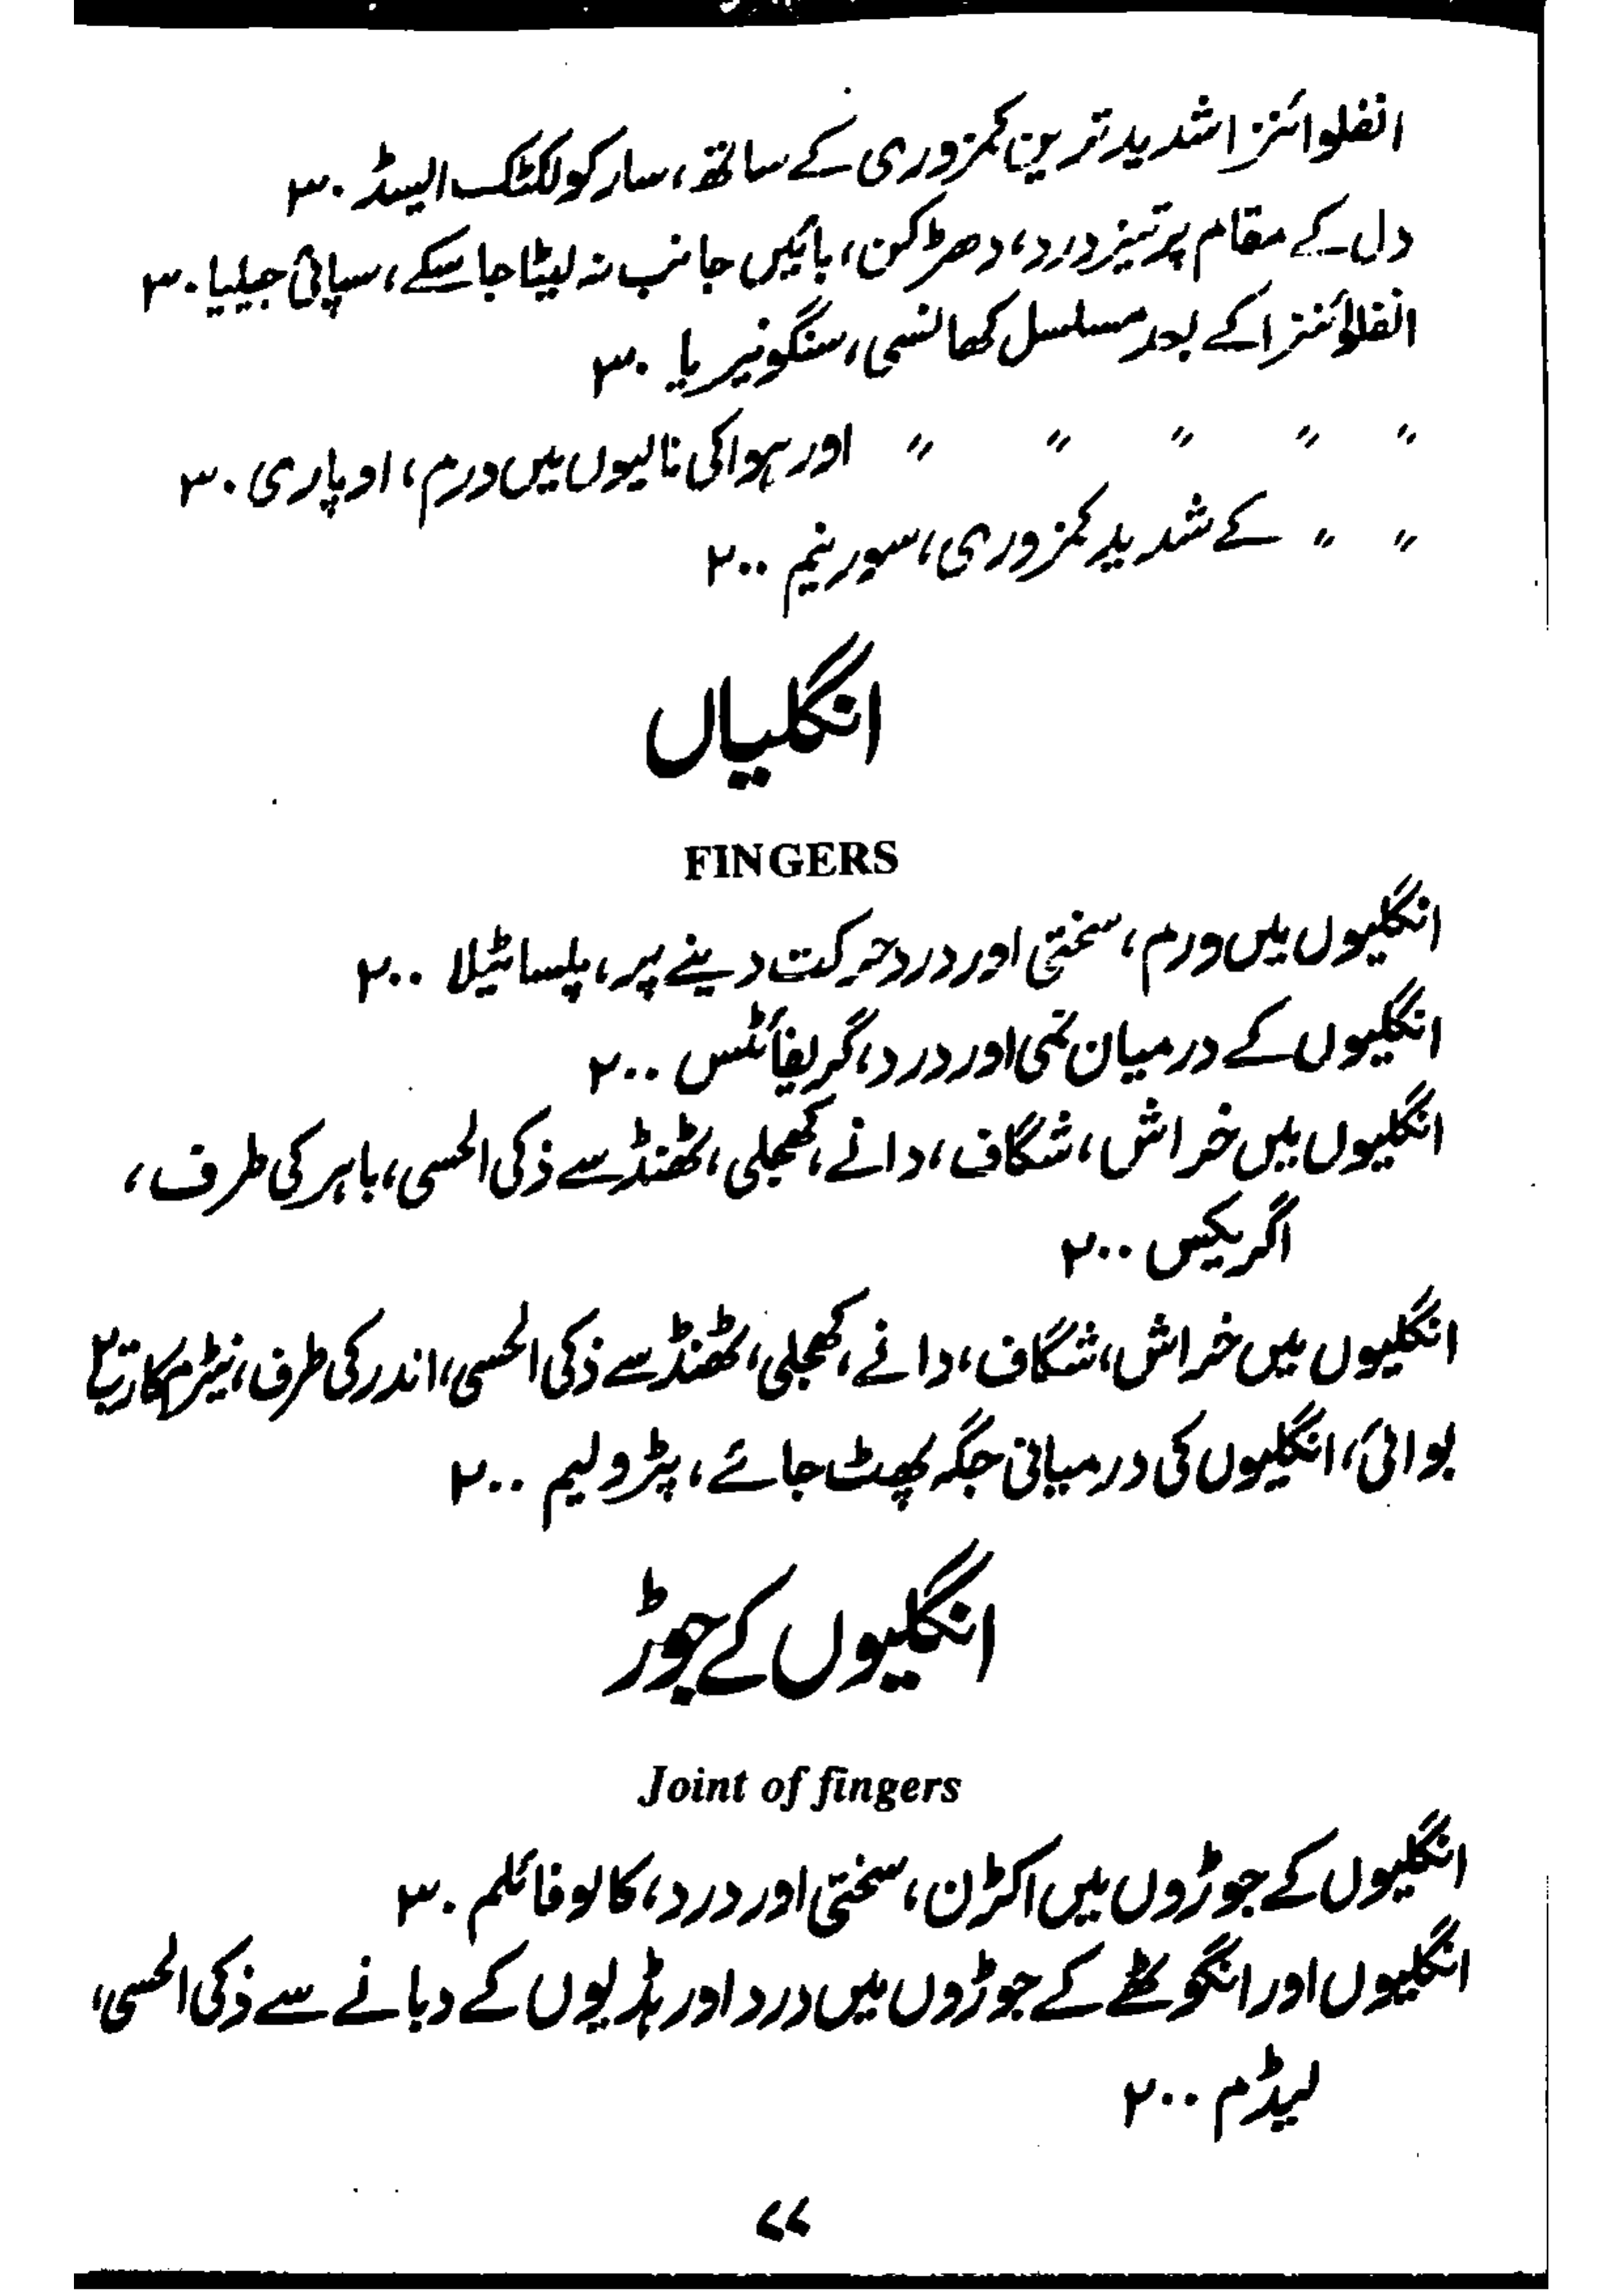 انفلوائنزا شدید ترین کمزوری کے ساتھ، سارکولکٹک ایسڈ ۳۰
دل کے مقام پر تیز درد، دھڑکن، بائیں جانب نہ لیٹا جا سکے، سپائی جیلیا ۳۰
انفلوائنزا کے بعد مسلسل کھانسی، سنگونیریا ۳۰
〃 〃 〃 〃 〃 اور ہوا کی نالیوں میں ورم، اوپاری ۳۰
〃 〃 کے شدید کمزوری، سورینم ۲۰۰
انگلیاں
FINGERS
انگلیوں میں ورم، سختی اور درد حرکت دینے پر، پلساٹیلا ۲۰۰
انگلیوں کے درمیان نمی اور درد، گریفائٹس ۲۰۰
انگلیوں میں خراش، شگاف، دانے، کھجلی، ٹھنڈ سے ذکی الحسی، باہر کی طرف،
اگریکس ۲۰۰
انگلیوں میں خراش، شگاف، دانے، کھجلی، ٹھنڈ سے ذکی الحسی، اندر کی طرف، نیٹرم کارب
بوائی، انگلیوں کی درمیانی جگہ پھٹ جائے، پٹرولیم ۲۰۰
انگلیوں کے جوڑ
Joint of fingers
انگلیوں کے جوڑوں میں اکڑن، سختی اور درد، کالوفائلم ۳۰
انگلیوں اور انگوٹھے کے جوڑوں میں درد اور ہڈیوں کے دبانے سے ذکی الحسی،
لیڈم ۲۰۰
۷۷